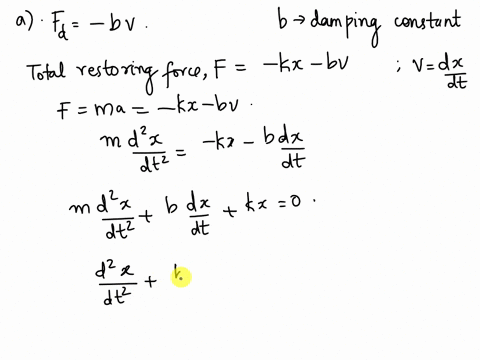 a). F_d = -bv. b → damping constant
Total restoring force, F = -kx - bv ; v = dx/dt
F = ma = -kx - bv.
m d²x/dt² = -kx - b dx/dt
m d²x/dt² + b dx/dt + kx = 0.
d²x/dt² +